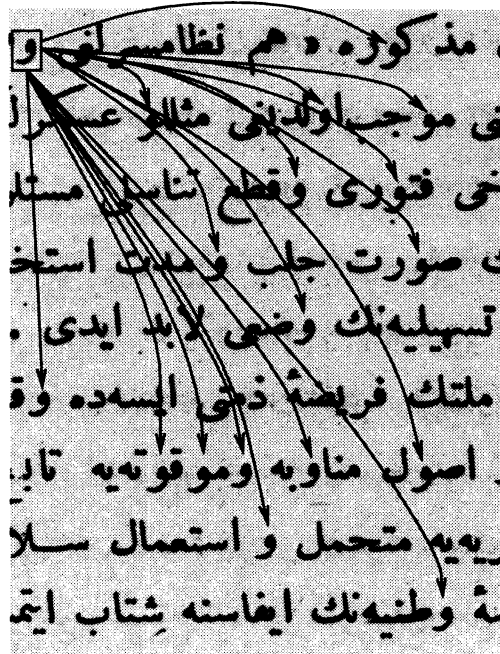 مذكوره هم نظامسزلغی و
موجب اولدیغی مثللو
فتوری وقطع تناسلی
صورت جلب ومدت
تسهیلیه‌نك وضعی لابد ایدی
ملتك فریضهٔ ذمتی ایسه‌ده
اصول مناوبه وموقوته‌یه
متحمل و استعمال
وطنیه‌نك ایفاسنه شتاب